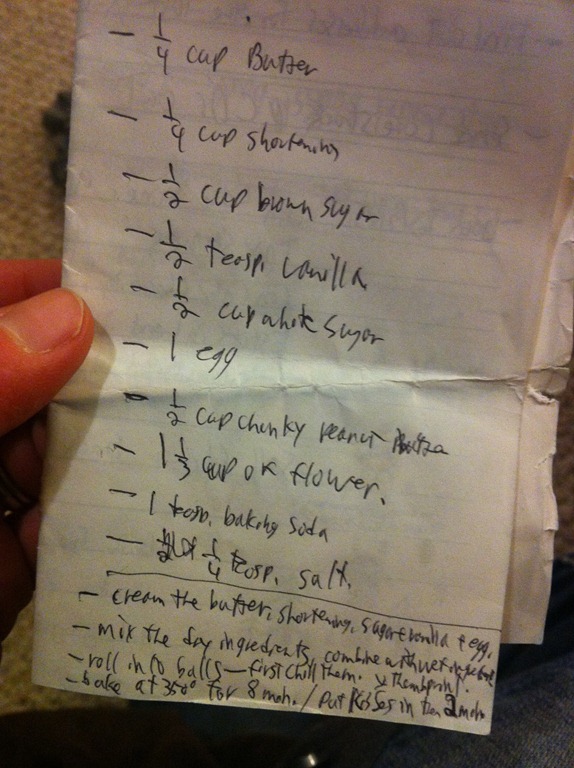 - 1/4 cup Butter
- 1/4 cup shortening
- 1/2 cup brown sugar
- 1/2 teasp. vanilla
- 1/2 cup white sugar
- 1 egg
- 1/2 cup chunky peanut
- 1 1/3 cup of flower.
- 1 teasp. baking soda
- 1/4 teasp. salt.
- cream the butter, shortening, sugar & vanilla & egg.
- mix the dry ingredients, combine with wet
- roll into balls — first chill them. & thumbprint.
- bake at 350° for 8 / put kisses in then 2